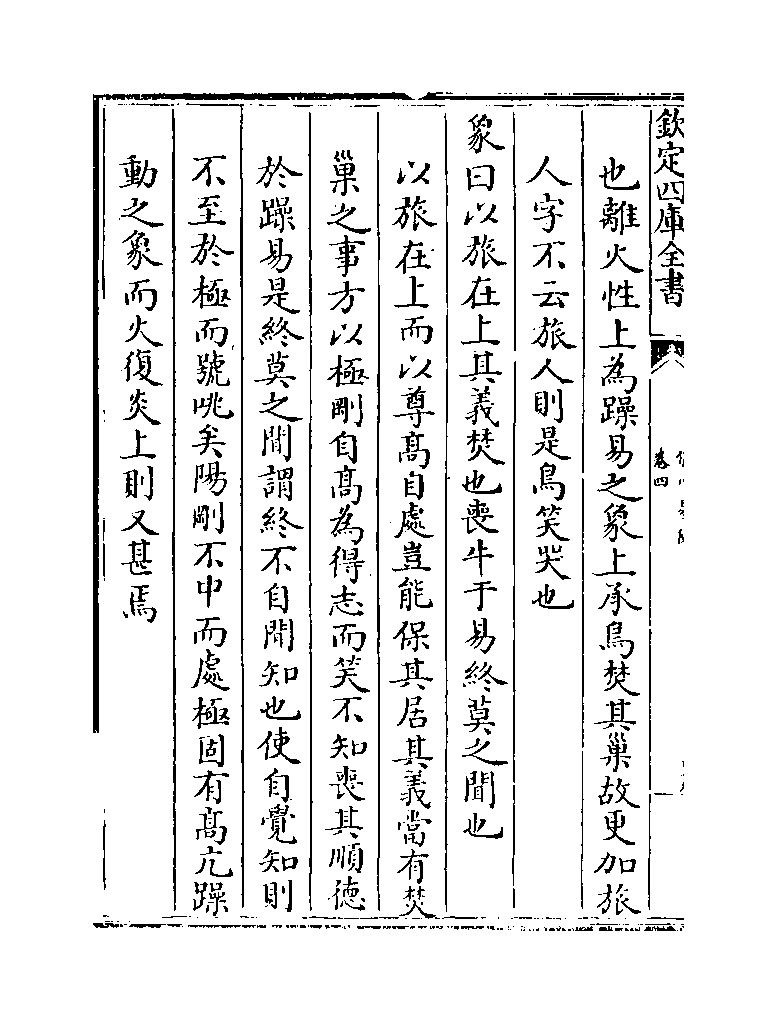 欽定四庫全書
卷四
也離火性上為躁易之象上承鳥焚其巢故更加旅
人字不云旅人則是鳥笑哭也
象曰以旅在上其義焚也喪牛于易終莫之聞也
以旅在上而以尊髙自處豈能保其居其義當有焚
巢之事方以極剛自髙為得志而笑不知喪其順德
於躁易是終莫之聞謂終不自聞知也使自覺知則
不至於極而號咷矣陽剛不中而處極固有髙亢躁
動之象而火復炎上則又甚焉